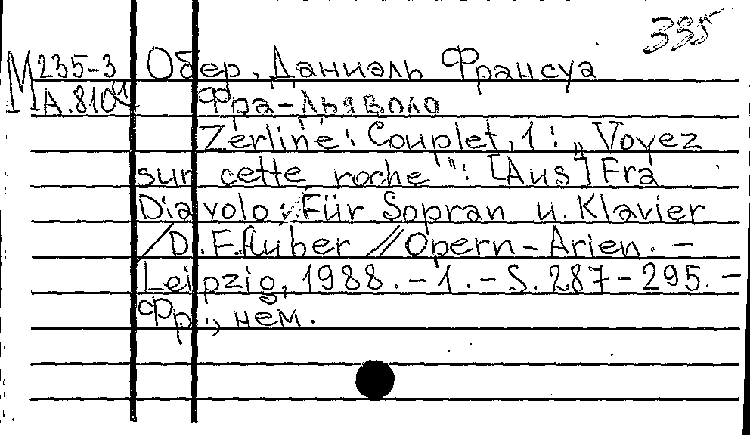 335
М 235-3 Обер, Даниэль Франсуа
А.810 Фра-Дьяволо
Zerline: Couplet, 1: „Voyez
sur cette roche": [Aus] Fra
Diavolo: Für Sopran u. Klavier
/D.F. Auber // Opern-Arien. –
Leipzig, 1988. – 1. – S. 287-295. –
Фр., нем.